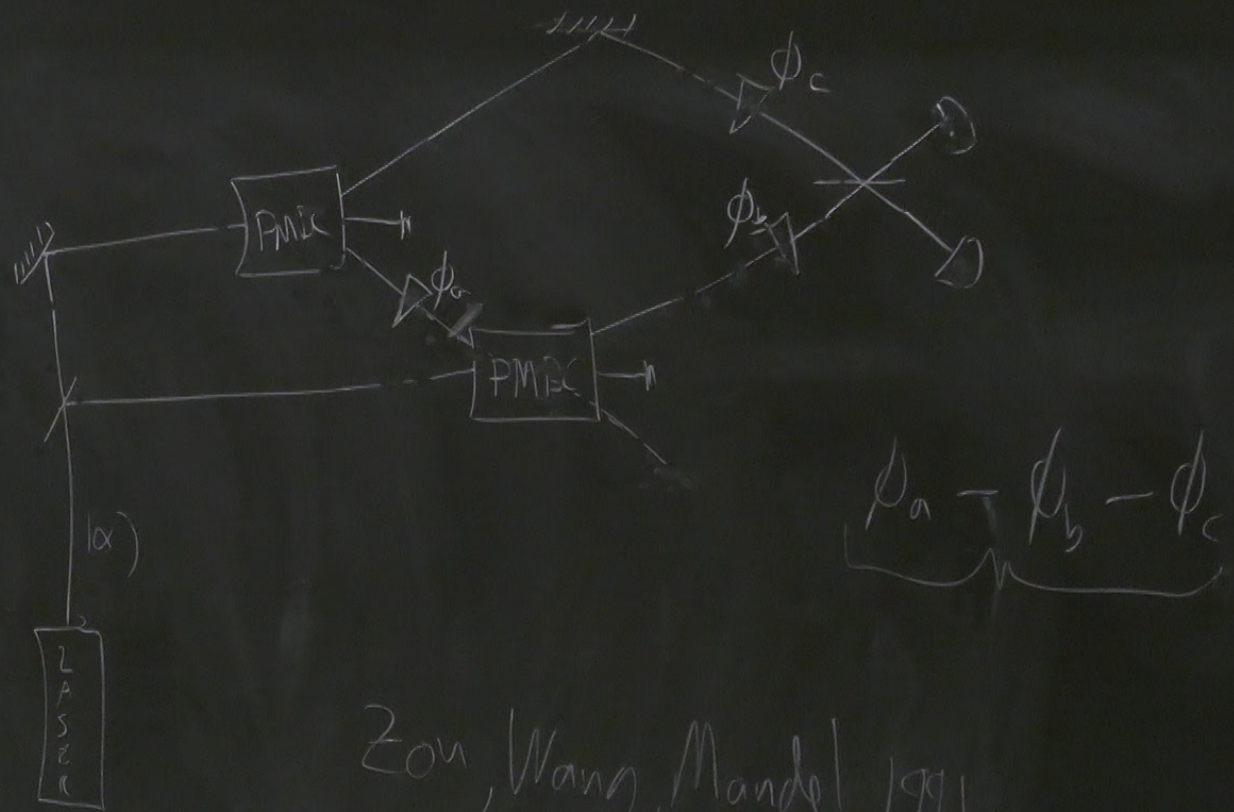 ϕc
PMDC
ϕb
ϕa
PMDC
ϕa - ϕb - ϕc
|α⟩
LASER
Zou, Wang, Mandel 1991